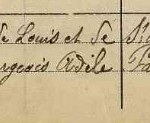 e Louis et de
rgeois Adèle